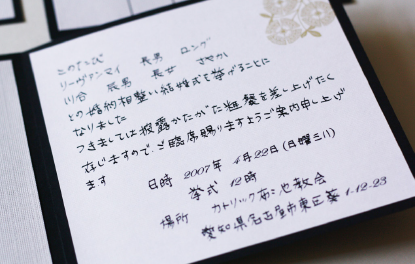 このたび
リーヴァンマイ 長男 ロング
川谷 長男 長女 さやか
との婚約相整い結婚式を挙げることに
なりました
つきましては披露かたがた粗餐を差し上げたく
存じますので、ご臨席賜りますようご案内申し上げ
ます
日時 2007年 4月22日(日曜日)
挙式 12時
場所 カトリック 教会
愛知県名古屋市東区葵1-12-23